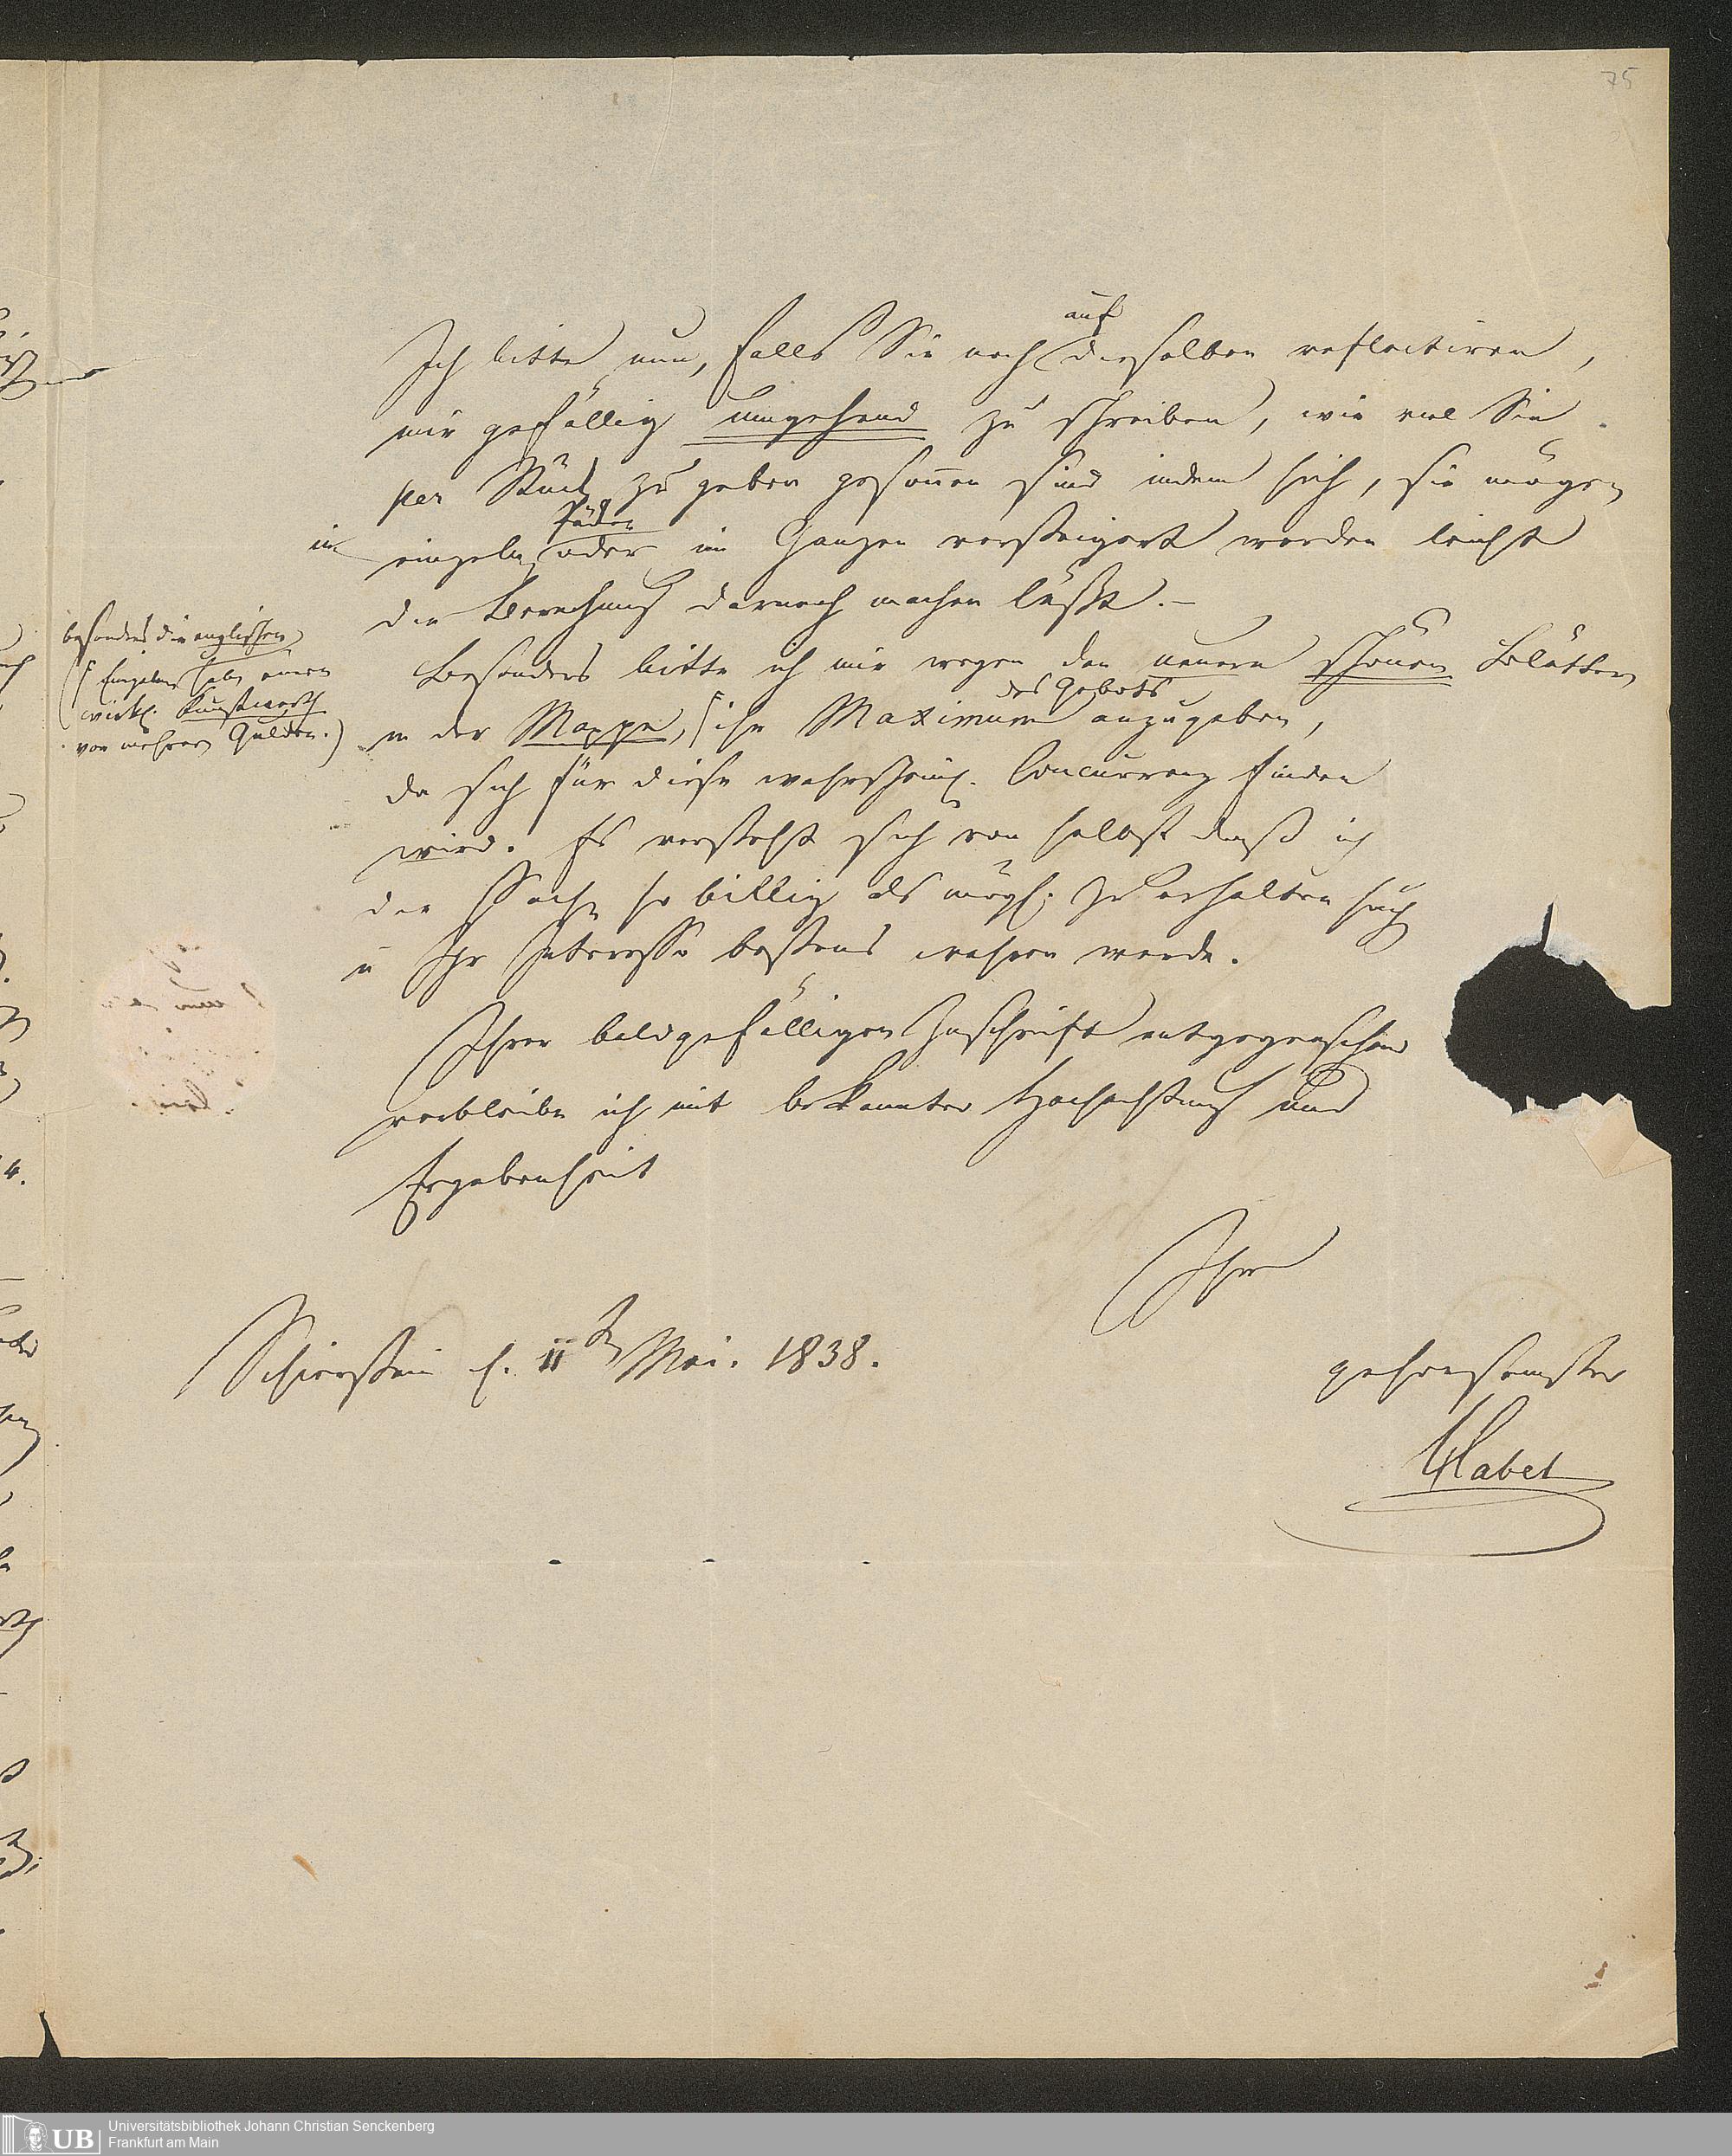 75
auf
Ich bitte nun, falls Sie noch dieselben reflectiren,
mir gefällig umgehend zu schreiben, wie viel Sie
per Stück zu geben gesoñen sind indem sich, sie mögen
in
einzeln oder im Ganzen versteigert werden leicht
die Berechnung darnach machen läßt. –
Besonders bitte ich mir wegen den neuern schönen Blättern
besonders die englischen
(Einzelne haben einen
wirkl. Kunstwerth
von mehrern Gulden.)
des Gebots
in der Mappe, ihr Maximum anzugeben,
da sich für diese wahrscheinl. Concurrenz finden
wird. Es versteht sich von selbst daß ich
die Sache so billig als mögl. zu erhalten suche
u Ihr Interesse bestens wahren werde.
Ihrer baldgefälligen Zuschrift entgegensehend
verbleibe ich mit bekannter Hochachtung und
Ergebenheit
Ihr
Schierstein d. 11ten Mai. 1838.
gehorsamster
Habel
UB Universitätsbibliothek Johann Christian Senckenberg
Frankfurt am Main